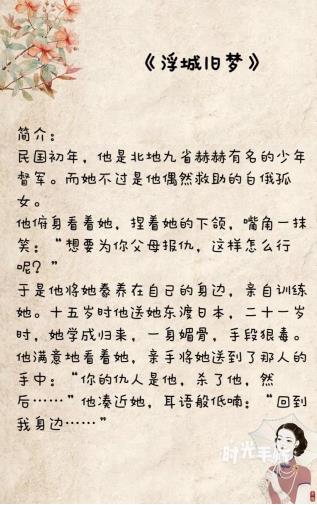 《浮城旧梦》
简介：
民国初年，他是北地九省赫赫有名的少年
督军。而她不过是他偶然救助的白俄孤
女。
他俯身看着她，捏着她的下颌，嘴角一抹
笑：“想要为你父母报仇，这样怎么行
呢？”
于是他将她豢养在自己的身边，亲自训练
她。十五岁时他送她东渡日本，二十一岁
时，她学成归来，一身媚骨，手段狠毒。
他满意地看着她，亲手将她送到了那人的
手中：“你的仇人是他，杀了他，然
后……”他凑近她，耳语般低喃：“回到
我身边……”